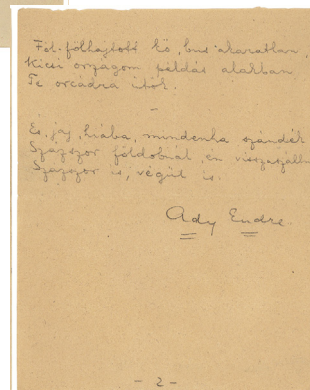 Föl-földhajtott kő, bus akaratban,
Kicsi országom példás alakban
Te orcádra ütök.
-
És, jaj, hiába, mindenha szándék
Százszor földobnál, én visszaszálln
Százszor is, végül is.
Ady Endre.
- 2 -